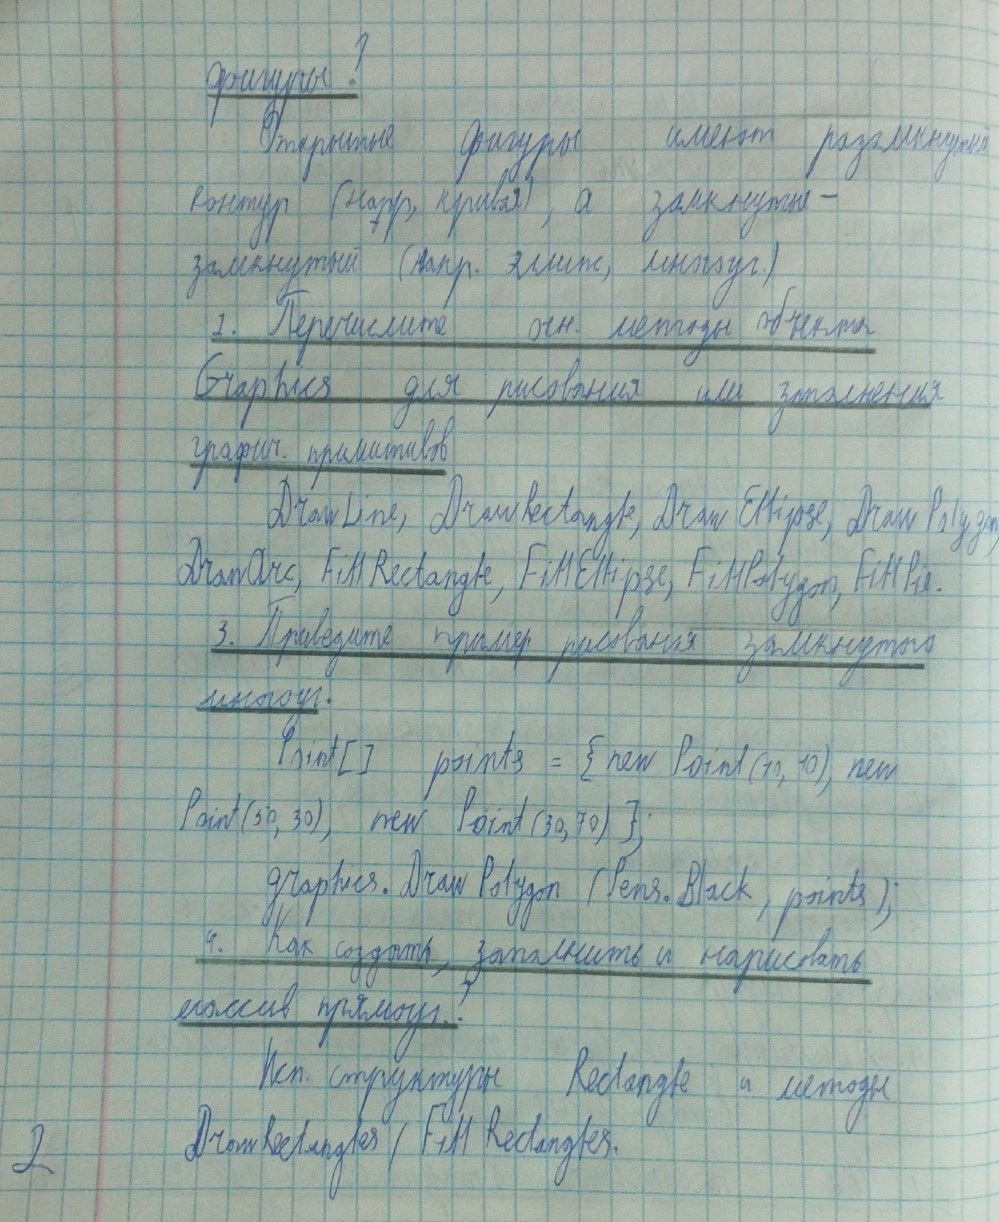 фигуры?
Открытые фигуры имеют разомкнутый
контур (напр, кривая), а замкнутые -
замкнутый (напр. эллипс, многоуг.)
2. Перечислите осн. методы объекта
Graphics для рисования или заполнения
графич. примитивов
DrawLine, DrawRectangle, DrawEllipse, DrawPolygon,
DrawArc, FillRectangle, FillEllipse, FillPolygon, FillPie.
3. Приведите пример рисования замкнутого
многоуг.
Point[] points = { new Point(10, 10), new
Point(50, 30), new Point(30, 70) };
graphics.DrawPolygon (Pens.Black, points);
4. Как создать, заполнить и нарисовать
массив прямоуг.?
Исп. структуры Rectangle и методы
DrawRectangles / FillRectangles.
2